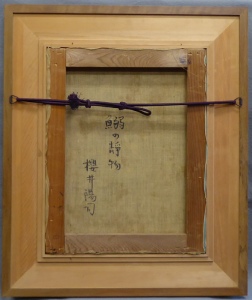 鰯の静物
櫻井陽司